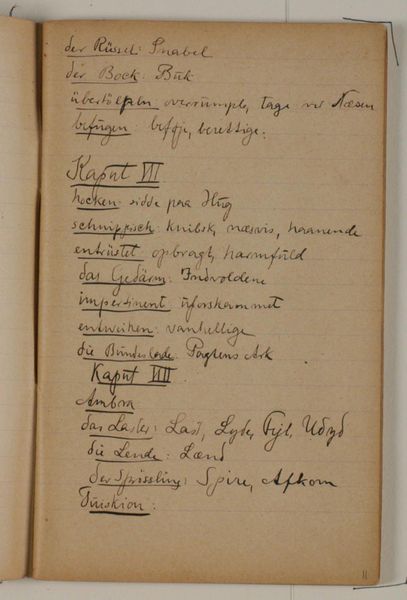 der Rüssel: Snabel
der Bock: Buk
übertölpeln overrumple, tage ved Næsen
befugen: beføje, berettige.
Kaput VII
hocken: sidde paa Hug
schnippisch: knibsk, næsvis, haanende
entrüstet opbragt, harmfuld
das Gedärm: Indvoldene
impertinent: uforskammet
entweihen: vanhellige
die Bundeslade: Pagtens Ark
Kaput VIII
Ambra
das Laster: Last, Lyde, Fejl, Udyd
die Lende: Lænd
der Sprössling: Spire, Afkom
11